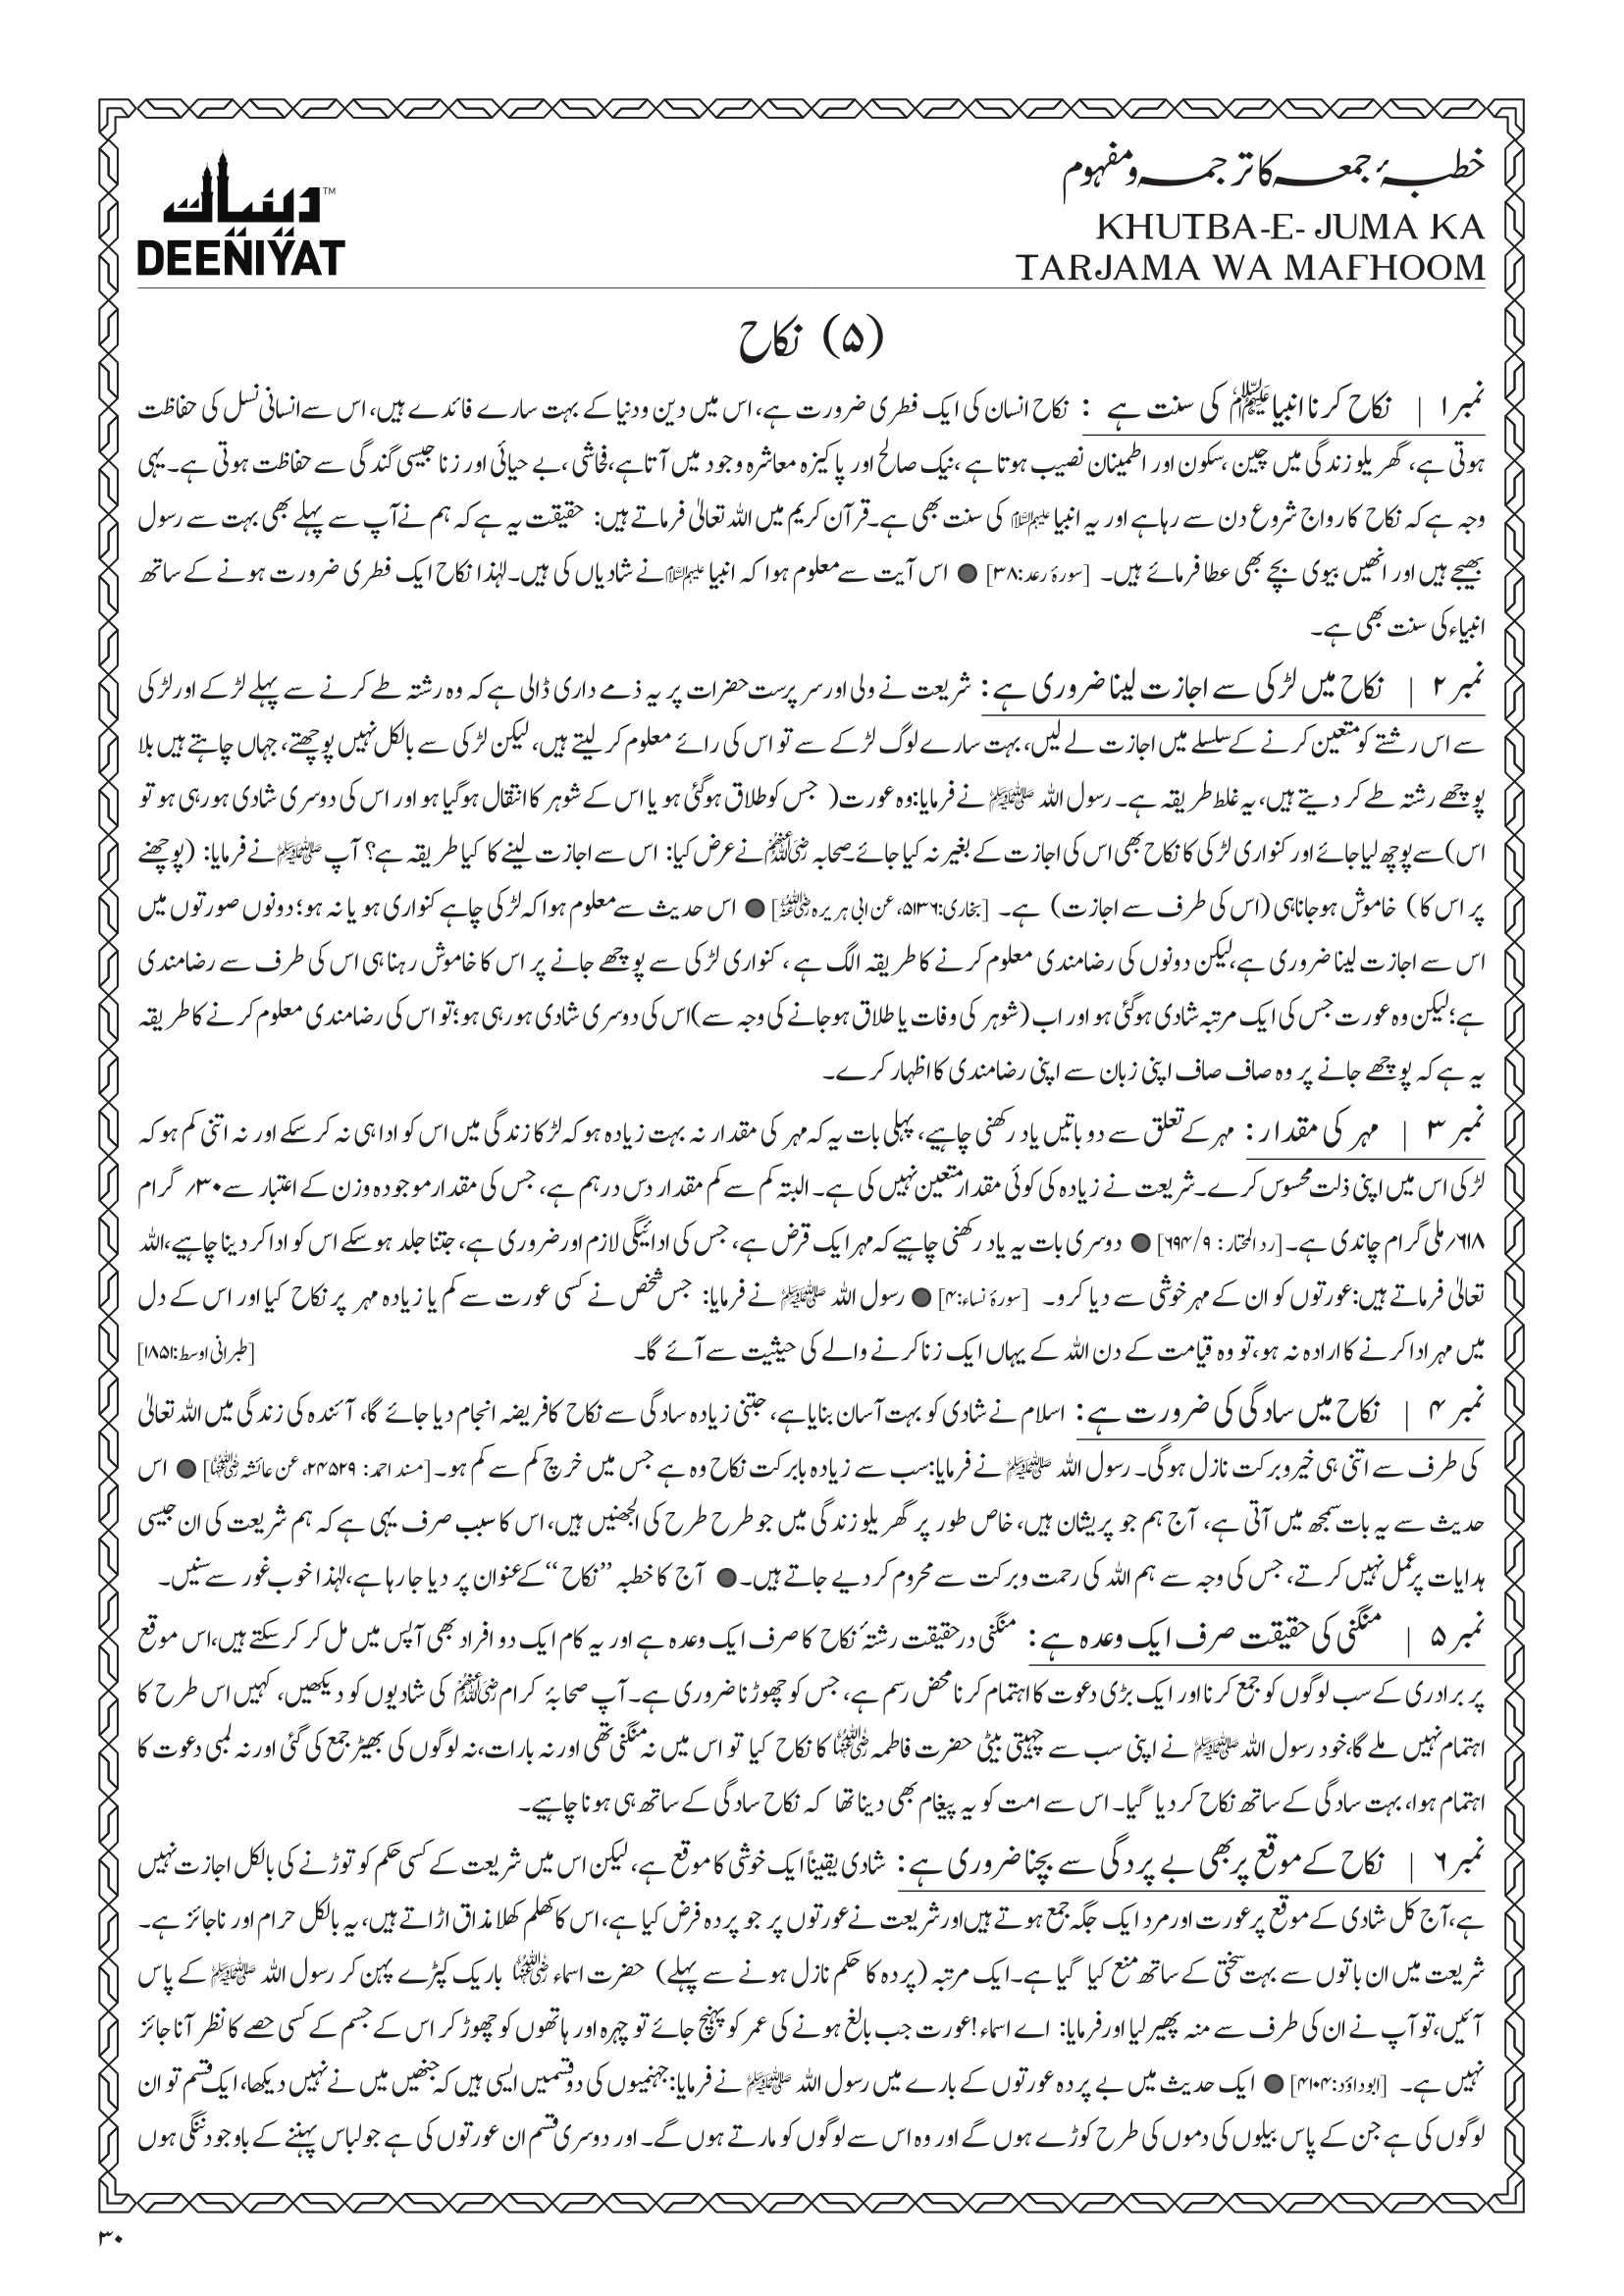 خطبۂ جمعہ کا ترجمہ و مفہوم
KHUTBA-E- JUMA KA
TARJAMA WA MAFHOOM
دینیات™
DEENIYAT
(۵) نکاح
نمبر ۱ | نکاح کرنا انبیا علیہم السلام کی سنت ہے : نکاح انسان کی ایک فطری ضرورت ہے، اس میں دین و دنیا کے بہت سارے فائدے ہیں، اس سے انسانی نسل کی حفاظت
ہوتی ہے، گھریلو زندگی میں چین ،سکون اور اطمینان نصیب ہوتا ہے ،نیک صالح اور پاکیزہ معاشرہ وجود میں آتا ہے،فحاشی ،بے حیائی اور زنا جیسی گندگی سے حفاظت ہوتی ہے۔ یہی
وجہ ہے کہ نکاح کا رواج شروع دن سے رہا ہے اور یہ انبیا علیہم السلام کی سنت بھی ہے۔قرآن کریم میں اللہ تعالیٰ فرماتے ہیں: حقیقت یہ ہے کہ ہم نے آپ سے پہلے بھی بہت سے رسول
بھیجے ہیں اور انھیں بیوی بچے بھی عطا فرمائے ہیں۔ [سورۂ رعد:۳۸] ● اس آیت سے معلوم ہوا کہ انبیا علیہم السلام نے شادیاں کی ہیں۔لہٰذا نکاح ایک فطری ضرورت ہونے کے ساتھ
انبیاء کی سنت بھی ہے۔
نمبر ۲ | نکاح میں لڑکی سے اجازت لینا ضروری ہے : شریعت نے ولی اور سر پرست حضرات پر یہ ذمے داری ڈالی ہے کہ وہ رشتہ طے کرنے سے پہلے لڑکے اور لڑکی
سے اس رشتے کو متعین کرنے کے سلسلے میں اجازت لے لیں، بہت سارے لوگ لڑکے سے تو اس کی رائے معلوم کر لیتے ہیں، لیکن لڑکی سے بالکل نہیں پوچھتے، جہاں چاہتے ہیں بلا
پوچھے رشتہ طے کر دیتے ہیں، یہ غلط طریقہ ہے۔ رسول اللہ ﷺ نے فرمایا:وہ عورت( جس کو طلاق ہوگئی ہو یا اس کے شوہر کا انتقال ہوگیا ہو اور اس کی دوسری شادی ہورہی ہو تو
اس)سے پوچھ لیا جائے اور کنواری لڑکی کا نکاح بھی اس کی اجازت کے بغیر نہ کیا جائے۔صحابہ رضی اللہ عنہم نے عرض کیا: اس سے اجازت لینے کا کیا طریقہ ہے؟ آپ ﷺ نے فرمایا: (پوچھنے
پر اس کا) خاموش ہوجانا ہی (اس کی طرف سے اجازت) ہے۔ [بخاری:۵۱۳۶، عن ابی ہریرہ رضی اللہ عنہ] ● اس حدیث سے معلوم ہوا کہ لڑکی چاہے کنواری ہو یا نہ ہو؛ دونوں صورتوں میں
اس سے اجازت لینا ضروری ہے،لیکن دونوں کی رضامندی معلوم کرنے کا طریقہ الگ ہے ، کنواری لڑکی سے پوچھے جانے پر اس کا خاموش رہنا ہی اس کی طرف سے رضامندی
ہے؛لیکن وہ عورت جس کی ایک مرتبہ شادی ہوگئی ہو اور اب (شوہر کی وفات یا طلاق ہوجانے کی وجہ سے)اس کی دوسری شادی ہورہی ہو؛تو اس کی رضامندی معلوم کرنے کا طریقہ
یہ ہے کہ پوچھے جانے پر وہ صاف صاف اپنی زبان سے اپنی رضامندی کا اظہار کرے۔
نمبر ۳ | مہر کی مقدار : مہر کے تعلق سے دو باتیں یاد رکھنی چاہیے، پہلی بات یہ کہ مہر کی مقدار نہ بہت زیادہ ہو کہ لڑکا زندگی میں اس کو ادا ہی نہ کر سکے اور نہ اتنی کم ہو کہ
لڑکی اس میں اپنی ذلت محسوس کرے۔شریعت نے زیادہ کی کوئی مقدار متعین نہیں کی ہے۔ البتہ کم سے کم مقدار دس درہم ہے، جس کی مقدار موجودہ وزن کے اعتبار سے ۳۰؍ گرام
۶۱۸؍ ملی گرام چاندی ہے۔[رد المحتار : ۶۹۴/۹] ● دوسری بات یہ یاد رکھنی چاہیے کہ مہر ایک قرض ہے، جس کی ادائیگی لازم اور ضروری ہے، جتنا جلد ہو سکے اس کو ادا کر دینا چاہیے،اللہ
تعالیٰ فرماتے ہیں:عورتوں کو ان کے مہر خوشی سے دیا کرو۔ [سورۂ نساء:۴] ● رسول اللہ ﷺ نے فرمایا: جس شخص نے کسی عورت سے کم یا زیادہ مہر پر نکاح کیا اور اس کے دل
میں مہر ادا کرنے کا ارادہ نہ ہو،تو وہ قیامت کے دن اللہ کے یہاں ایک زنا کرنے والے کی حیثیت سے آئے گا۔ [طبرانی اوسط:۱۸۵۱]
نمبر ۴ | نکاح میں سادگی کی ضرورت ہے : اسلام نے شادی کو بہت آسان بنایا ہے، جتنی زیادہ سادگی سے نکاح کا فریضہ انجام دیا جائے گا، آئندہ کی زندگی میں اللہ تعالیٰ
کی طرف سے اتنی ہی خیر و برکت نازل ہوگی۔ رسول اللہ ﷺ نے فرمایا:سب سے زیادہ بابرکت نکاح وہ ہے جس میں خرچ کم سے کم ہو۔[مسند احمد: ۲۴۵۲۹، عن عائشہ رضی اللہ عنہا] ● اس
حدیث سے یہ بات سمجھ میں آتی ہے، آج ہم جو پریشان ہیں، خاص طور پر گھریلو زندگی میں جو طرح طرح کی الجھنیں ہیں، اس کا سبب صرف یہی ہے کہ ہم شریعت کی ان جیسی
ہدایات پر عمل نہیں کرتے، جس کی وجہ سے ہم اللہ کی رحمت و برکت سے محروم کر دیے جاتے ہیں۔ ● آج کا خطبہ ”نکاح “کے عنوان پر دیا جا رہا ہے،لہٰذا خوب غور سے سنیں۔
نمبر ۵ | منگنی کی حقیقت صرف ایک وعدہ ہے : منگنی درحقیقت رشتۂ نکاح کا صرف ایک وعدہ ہے اور یہ کام ایک دو افراد بھی آپس میں مل کر کر سکتے ہیں،اس موقع
پر برادری کے سب لوگوں کو جمع کرنا اور ایک بڑی دعوت کا اہتمام کرنا محض رسم ہے، جس کو چھوڑنا ضروری ہے۔ آپ صحابۂ کرام رضی اللہ عنہم کی شادیوں کو دیکھیں، کہیں اس طرح کا
اہتمام نہیں ملے گا،خود رسول اللہ ﷺ نے اپنی سب سے چہیتی بیٹی حضرت فاطمہ رضی اللہ عنہا کا نکاح کیا تو اس میں نہ منگنی تھی اور نہ بارات،نہ لوگوں کی بھیڑ جمع کی گئی اور نہ لمبی دعوت کا
اہتمام ہوا، بہت سادگی کے ساتھ نکاح کر دیا گیا۔ اس سے امت کو یہ پیغام بھی دینا تھا کہ نکاح سادگی کے ساتھ ہی ہونا چاہیے۔
نمبر ۶ | نکاح کے موقع پر بھی بے پردگی سے بچنا ضروری ہے : شادی یقیناً ایک خوشی کا موقع ہے، لیکن اس میں شریعت کے کسی حکم کو توڑنے کی بالکل اجازت نہیں
ہے،آج کل شادی کے موقع پر عورت اور مرد ایک جگہ جمع ہوتے ہیں اور شریعت نے عورتوں پر جو پردہ فرض کیا ہے، اس کا کھلم کھلا مذاق اڑاتے ہیں، یہ بالکل حرام اور ناجائز ہے۔
شریعت میں ان باتوں سے بہت سختی کے ساتھ منع کیا گیا ہے۔ایک مرتبہ (پردہ کا حکم نازل ہونے سے پہلے) حضرت اسماء رضی اللہ عنہا باریک کپڑے پہن کر رسول اللہ ﷺ کے پاس
آئیں،تو آپ نے ان کی طرف سے منہ پھیر لیا اور فرمایا: اے اسماء!عورت جب بالغ ہونے کی عمر کو پہنچ جائے تو چہرہ اور ہاتھوں کو چھوڑ کر اس کے جسم کے کسی حصے کا نظر آنا جائز
نہیں ہے۔ [ابوداؤد:۴۱۰۴] ● ایک حدیث میں بے پردہ عورتوں کے بارے میں رسول اللہ ﷺ نے فرمایا:جہنمیوں کی دو قسمیں ایسی ہیں کہ جنھیں میں نے نہیں دیکھا،ایک قسم تو ان
لوگوں کی ہے جن کے پاس بیلوں کی دموں کی طرح کوڑے ہوں گے اور وہ اس سے لوگوں کو مارتے ہوں گے۔ اور دوسری قسم ان عورتوں کی ہے جو لباس پہننے کے باوجود ننگی ہوں
۳۰